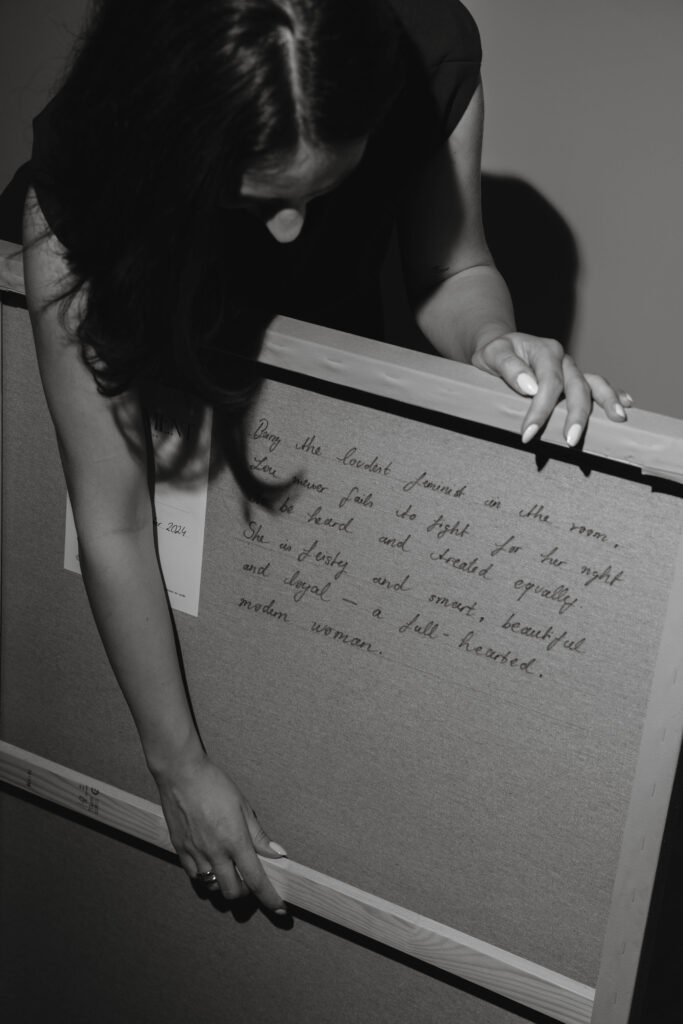 Being the loudest feminist in the room,
Lou never fails to fight for her right
to be heard and treated equally
She is feisty and smart, beautiful
and loyal – a full-hearted.
modern woman.
2024